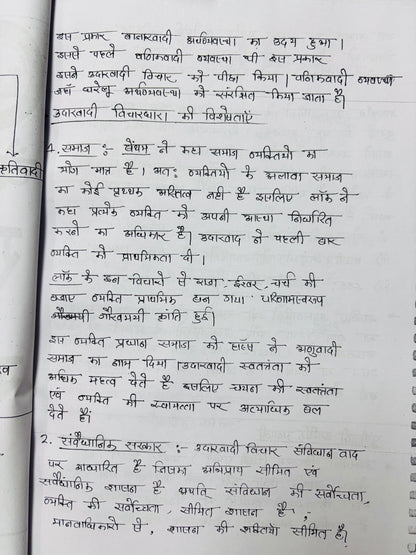 इस प्रकार बाजारवादी अर्थव्यवस्था का उदय हुआ।
इससे पहले वणिकवादी व्यवस्था थी इस प्रकार
इसने उदारवादी विचार को पैदा किया। वणिकवादी व्यवस्था
जहाँ घरेलू अर्थव्यवस्था को संरक्षित किया जाता है।
उदारवादी विचारधारा की विशेषताएँ
1. समाज :- बेंथम ने कहा समाज व्यक्तियों का
योग मात्र है। अतः व्यक्तियों के अलावा समाज
का कोई प्रथक अस्तित्व नहीं है इसलिए लॉक ने
कहा प्रत्येक व्यक्ति को अपनी आस्था निर्धारित
करने का अधिकार है। उदारवाद ने पहली बार
व्यक्ति को प्राथमिकता दी।
लॉक के इन विचारों से राजा, ईश्वर, चर्च की
बजाए व्यक्ति प्राथमिक बन गया। परिणामस्वरूप
गौरवमयी क्रांति हुई।
इस व्यक्ति प्रधान समाज को हॉब्स ने अणुवादी
समाज का नाम दिया। उदारवादी स्वतंत्रता को
अधिक महत्व देते है इसलिए चयन की स्वतंत्रता
एवं व्यक्ति की स्वायत्तता पर अत्यधिक बल
देते हैं।
2. संवैधानिक सरकार :- उदारवादी विचार संविधान वाद
पर आधारित है जिसका अभिप्राय सीमित एवं
संवैधानिक शासन है अर्थात संविधान की सर्वोच्चता,
व्यक्ति की सर्वोच्चता, सीमित शासन है ;
मानवाधिकारों से, शासन की शक्तियाँ सीमित है।
कृतिवादी